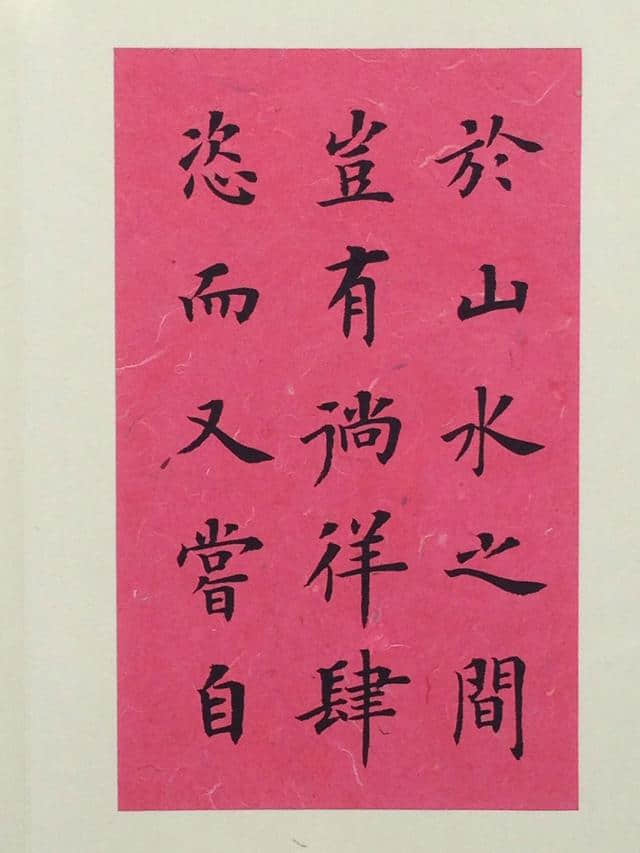 於山水之間
豈有徜徉肆
恣而又嘗自